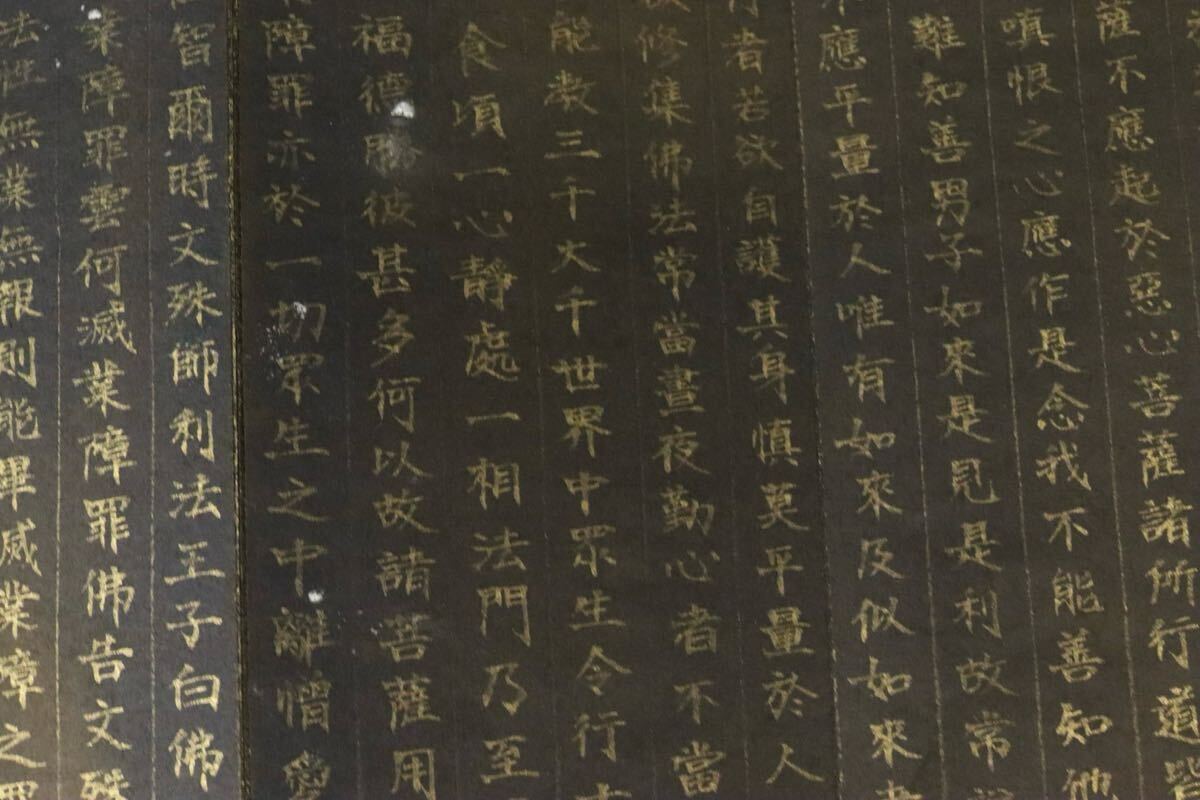 薩不應起於惡心菩薩諸所行道皆
嗔恨之心應作是念我不能善知他
難知善男子如來是見是利故常
應平量於人唯有如來及似如來者
者若欲自護其身慎莫平量於人
修集佛法常當晝夜勤心者不當
能教三千大千世界中眾生令行十
食頃一心靜處一相法門乃至
福德勝彼甚多何以故諸菩薩用
障罪亦於一切眾生之中離憎愛
智爾時文殊師利法王子白佛
業障罪雲何滅業障罪佛告文殊
法性無業無報則能畢滅業障之罪